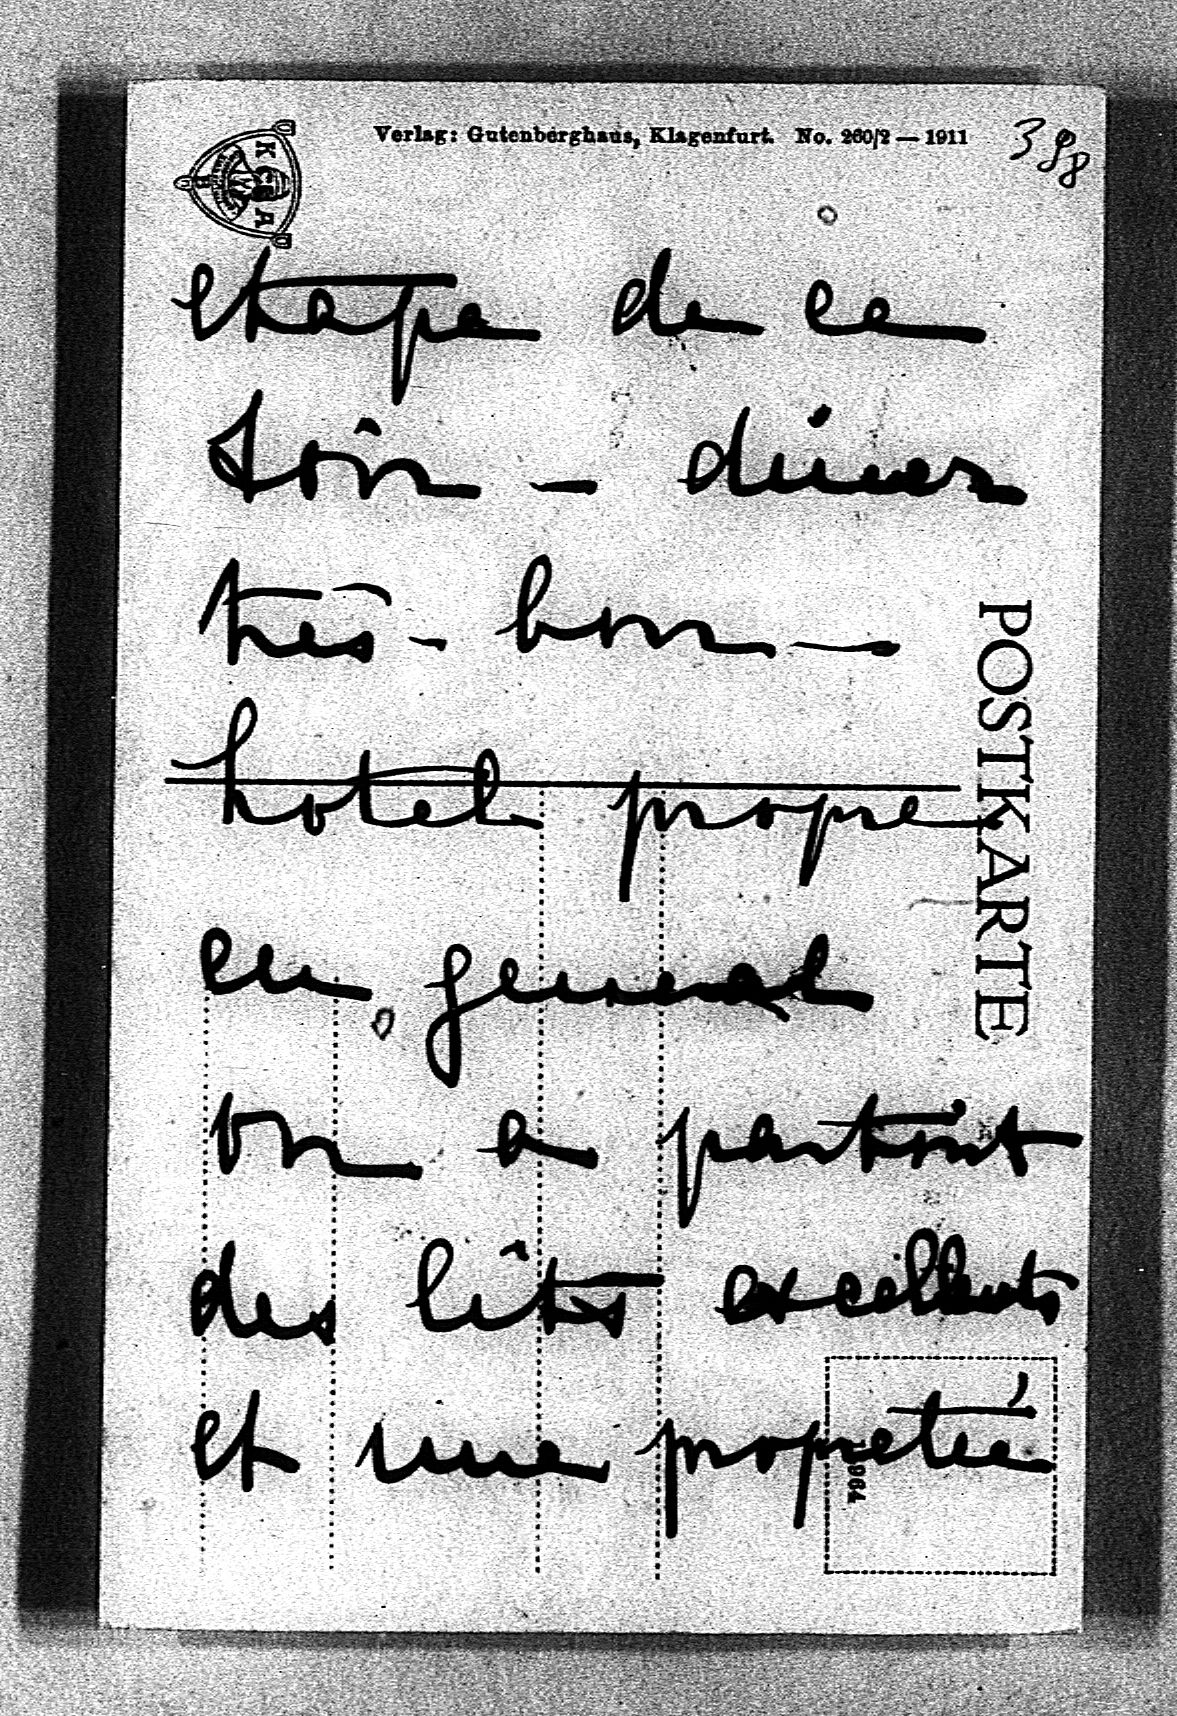 Verlag: Gutenberghaus, Klagenfurt. No. 260/2 — 1911
398
K
A
etape de ce
soir — diner
très - bon —
hotel propre
en general
on a partout
des lits excellents
et une propreté
POSTKARTE